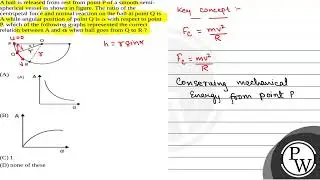 A ball is released from rest from point P of a smooth semi-
spherical vessel as shown in figure. The ratio of the
centripetal force and normal reaction on the ball at point Q is
A while angular position of point Q is α with respect to point
P. which of the following graphs represented the correct
relation between A and α when ball goes from Q to R ?
h = r sinα
(A)
A
α
(B)
A
α
(C) 1
(D) none of these
Key concept :-
Fc = mv²/R
Fc = mv²/R
Conserving mechanical
Energy from point P
PW